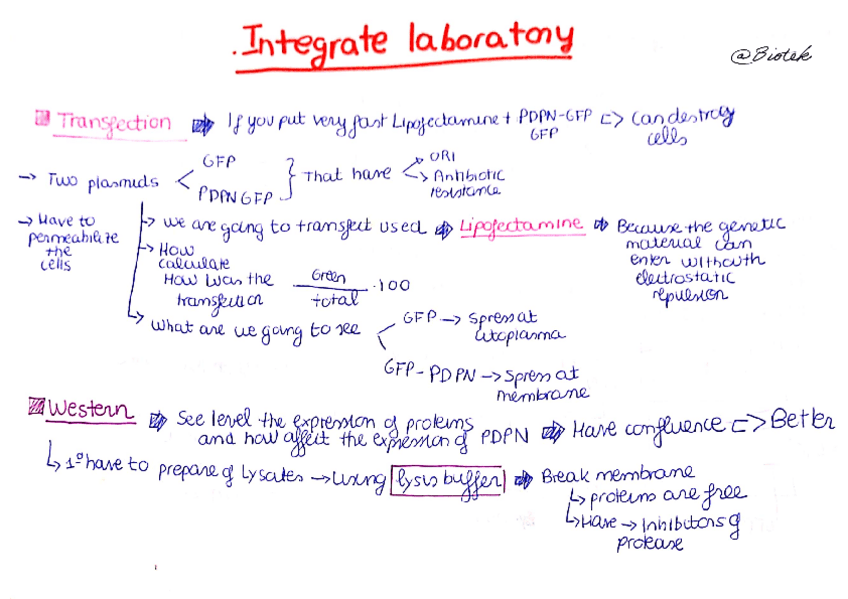 .Integrate laboratory
@Biotek
Transfection ⇒ If you put very fast Lipofectamine + PDPN-GFP => Can destroy
GFP cells
→ Two plasmids < GFP } That have < ORI
PDPN GFP Antibiotic
resistance
→ Have to
permeabilize
the
cells
→ we are going to transfect used ⇒ Lipofectamine ⇒ Because the genetic
material can
enter withouth
electrostatic
repulsion
→ How
calculate
How was the Green
transfection total .100
→ What are we going to see < GFP → Spress at
citoplasma
GFP-PDPN → Spress at
membrane
Western ⇒ See level the expression of proteins
and how affect the expression of PDPN ⇒ Have confluence => Better
↳ 1º have to prepare of lysates → using lysis buffer ⇒ Break membrane
↳ proteins are free
↳ Have → Inhibitors of
protease